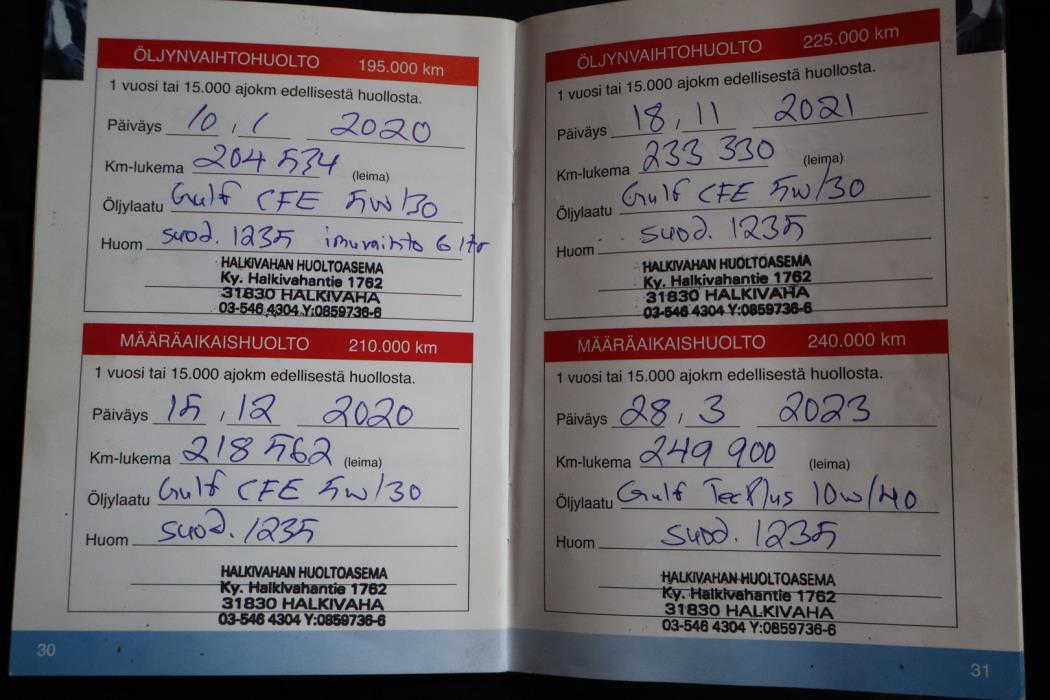 ÖLJYNVAIHTOHUOLTO 195.000 km
1 vuosi tai 15.000 ajokm edellisestä huollosta.
Päiväys 10 , 1 2020
Km-lukema 204 534 (leima)
Öljylaatu Gulf CFE 5W/30
Huom suod. 1235 imuvaihto 6 ltr
HALKIVAHAN HUOLTOASEMA
Ky. Halkivahantie 1762
31830 HALKIVAHA
03-546 4304 Y:0859736-6
MÄÄRÄAIKAISHUOLTO 210.000 km
1 vuosi tai 15.000 ajokm edellisestä huollosta.
Päiväys 15 , 12 2020
Km-lukema 218 562 (leima)
Öljylaatu Gulf CFE 5W/30
Huom suod. 1235
HALKIVAHAN HUOLTOASEMA
Ky. Halkivahantie 1762
31830 HALKIVAHA
03-546 4304 Y:0859736-6
30
ÖLJYNVAIHTOHUOLTO 225.000 km
1 vuosi tai 15.000 ajokm edellisestä huollosta.
Päiväys 18 , 11 2021
Km-lukema 233 330 (leima)
Öljylaatu Gulf CFE 5W/30
Huom suod. 1235
HALKIVAHAN HUOLTOASEMA
Ky. Halkivahantie 1762
31830 HALKIVAHA
03-546 4304 Y:0859736-6
MÄÄRÄAIKAISHUOLTO 240.000 km
1 vuosi tai 15.000 ajokm edellisestä huollosta.
Päiväys 28 , 3 2023
Km-lukema 249 900 (leima)
Öljylaatu Gulf TecPlus 10W/40
Huom suod. 1235
HALKIVAHAN HUOLTOASEMA
Ky. Halkivahantie 1762
31830 HALKIVAHA
03-546 4304 Y:0859736-6
31